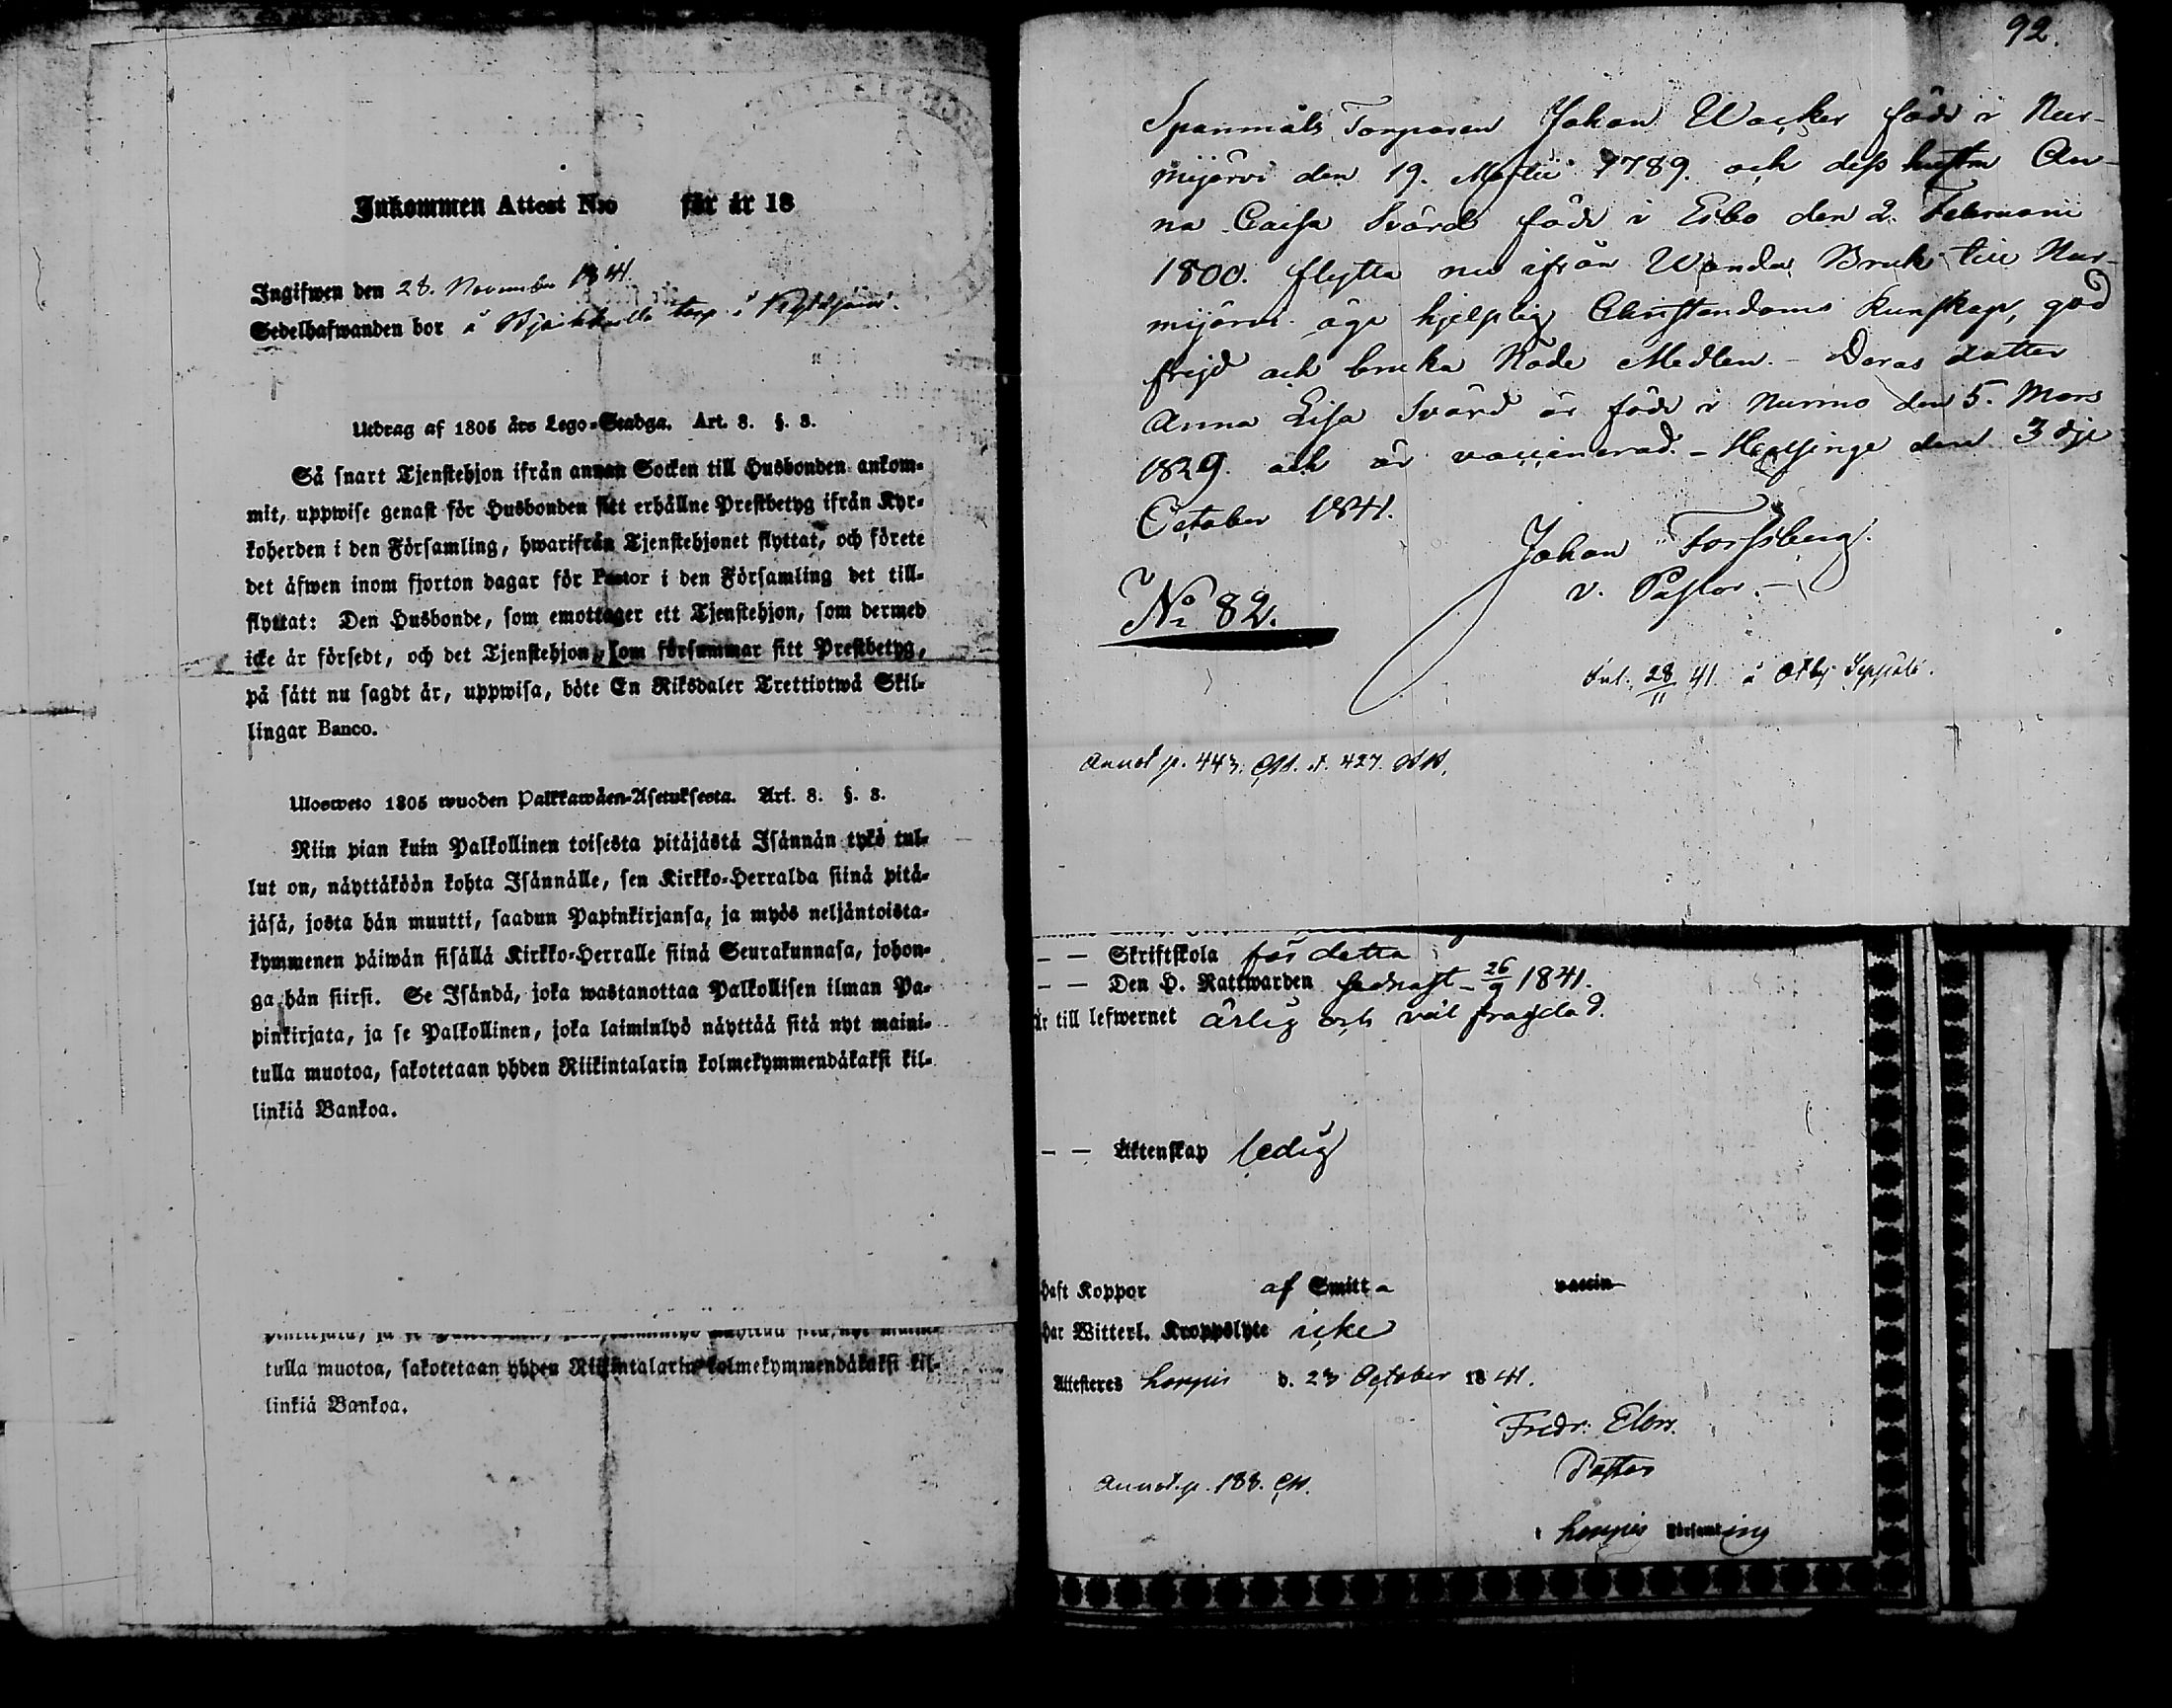 Inkommen Attest N:o för år 18
Ingifwen den 28. November 1841.
Sedelhafwanden bor å torp i
Utdrag af 1805 års Lego-Stadga. Art. 3. §. 3.
Så snart Tjenstehjon ifrån annan Socken till Husbonden ankom-
mit, uppwise genast för Husbonden sitt erhållne Prestbetyg ifrån Kyr-
koherden i den Församling, hwarifrån Tjenstehjonet flyttat, och förete
det äfwen inom fjorton dagar för Pastor i den Församling det till-
flyttat: Den Husbonde, som emottager ett Tjenstehjon, som dermed
icke är försedt, och det Tjenstehjon, som försummar sitt Prestbetyg,
på sätt nu sagdt är, uppwisa, böte En Riksdaler Trettiotwå Skil-
lingar Banco.
Ulosweto 1805 wuoden Palkkawäen-Asetuksesta. Art. 3. §. 3.
Niin pian kuin Palkollinen toisesta pitäjästä Isännän tykö tul-
lut on, näyttäköön kohta Isännälle, sen Kirkko-Herralda siinä pitä-
jäsä, josta hän muutti, saadun Papinkirjansa, ja myös neljäntoista-
kymmenen päiwän sisällä Kirkko-Herralle siinä Seurakunnasa, johon-
ga hän siirsi. Se Isändä, joka wastanottaa Palkollisen ilman Pa-
pinkirjata, ja se Palkollinen, joka laiminlyö näyttää sitä nyt maini-
tulla muotoa, sakotetaan yhden Riikintalarin kolmekymmendäkaksi kil-
linkiä Bankoa.
tulla muotoa, sakotetaan yhden Riikintalarin kolmekymmendäkaksi kil-
linkiä Bankoa.
92.
Torparen Johan Wacker född i Nur-
mijärvi den 19. Martii 1789. och dess hustru An-
na Caisa Svärd född i Esbo den 2. Februarii
1800. flytta nu ifrån Wanda Bruk till Nur-
mijärvi. äga hjelplig Christendoms kunskap, god
frejd och bruka Nåde Medlen. - Deras dotter
Anna Lisa Svärd är född i Nurmo den 5. Mars
1829. och är vaccinerad. - Helsinge den 3dje
October 1841.
Johan Forssberg.
v. Pastor. -
No 82.
28/11 41 å
Annot p. 443.
- - Skriftskola för detta
- - Den H. Nattwarden sednast - 26/9 1841.
Är till lefwernet ärlig och väl frägdad.
- - Äktenskap ledig
haft Koppor af Smitta vaccin
har Witterl. Kroppslyte icke
Attesteres Loppis d. 23 October 1841.
Fredr: Elers.
Pastor
i Loppis Församling
Annot. p. 188.